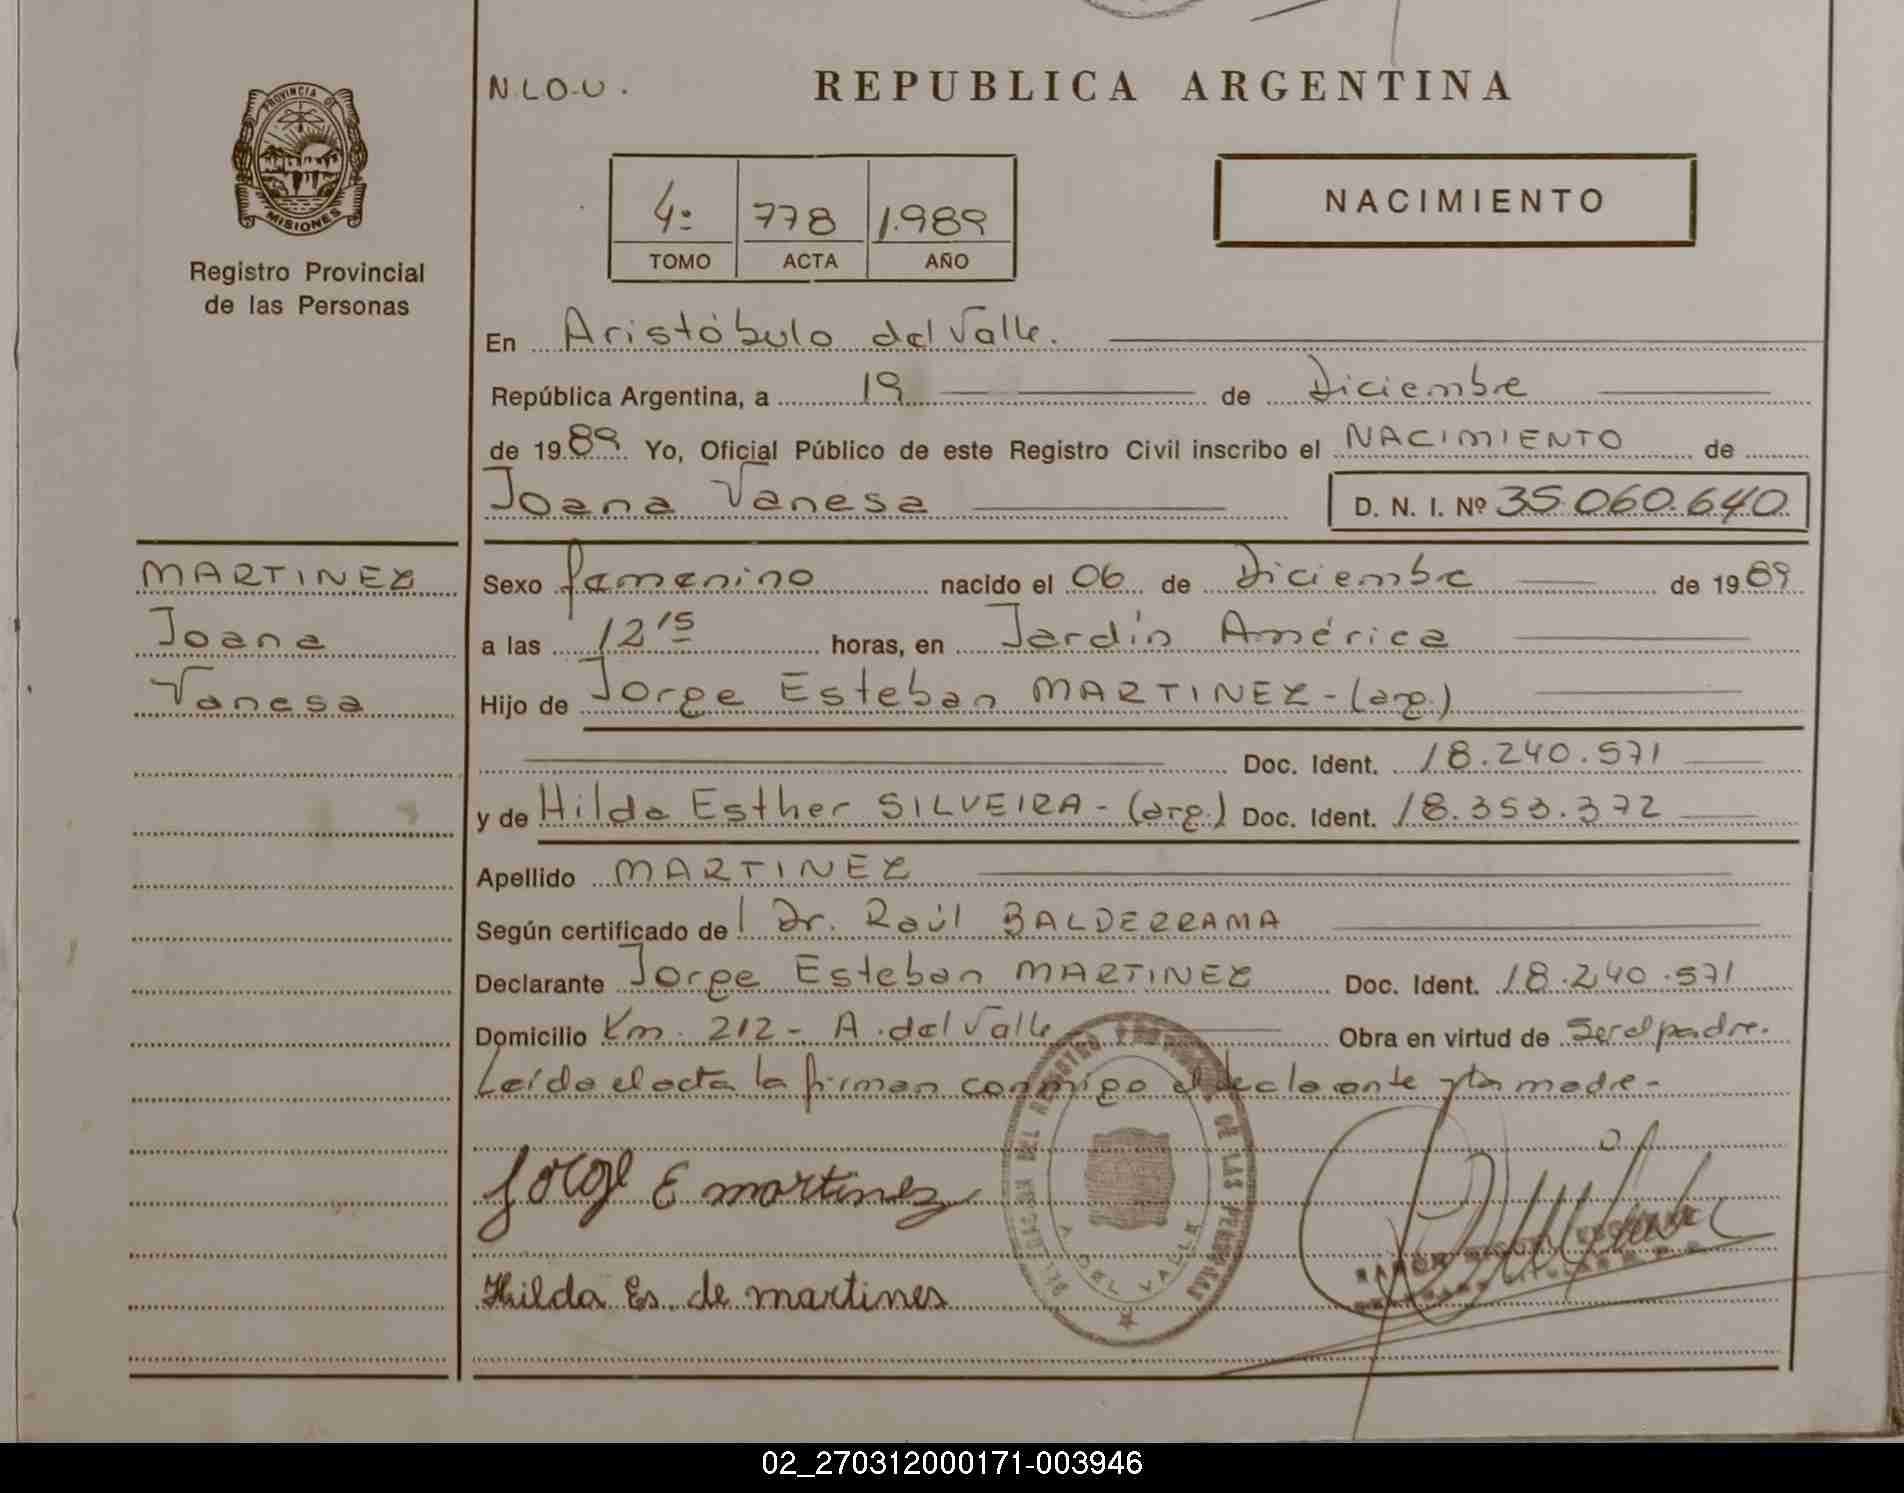 N.L.O.U.
REPUBLICA ARGENTINA
PROVINCIA DE
MISIONES
Registro Provincial
de las Personas
4º 778 1.989
TOMO ACTA AÑO
NACIMIENTO
En Aristóbulo del Valle.
República Argentina, a 19 de Diciembre
de 1989 Yo, Oficial Público de este Registro Civil inscribo el NACIMIENTO de
Joana Vanesa D. N. I. Nº 35.060.640
MARTINEZ
Joana
Vanesa
Sexo femenino nacido el 06 de Diciembre de 1989
a las 12 15 horas, en Jardín América
Hijo de Jorge Esteban MARTINEZ - (arg.)
Doc. Ident. 18.240.571
y de Hilda Esther SILVEIRA - (arg.) Doc. Ident. 18.353.372
Apellido MARTINEZ
Según certificado de Dr. Raúl BALDERRAMA
Declarante Jorge Esteban MARTINEZ Doc. Ident. 18.240.571
Domicilio Km. 212 - A. del Valle Obra en virtud de ser el padre.
Leída el acta la firman conmigo el declarante y la madre -
Jorge E martinez
Hilda Es. de martines
DEL REGISTRO DE LAS PERSONAS
A. DEL VALLE
RAMON
02_270312000171-003946